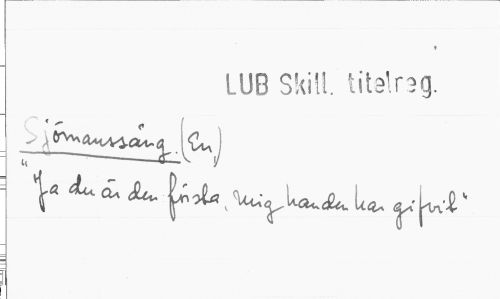 LUB Skill. titelreg.
Sjömanssång. (En)
"Ja du är den första, mig handen har gifvit"